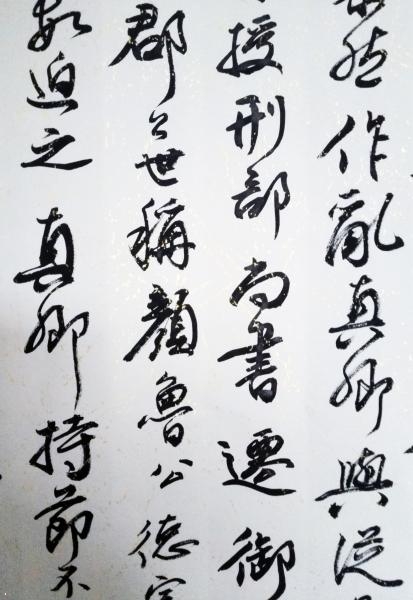 然作亂真卿與從
授刑部尚書遷御
郡公世稱顏魯公德
迫之真卿持節不